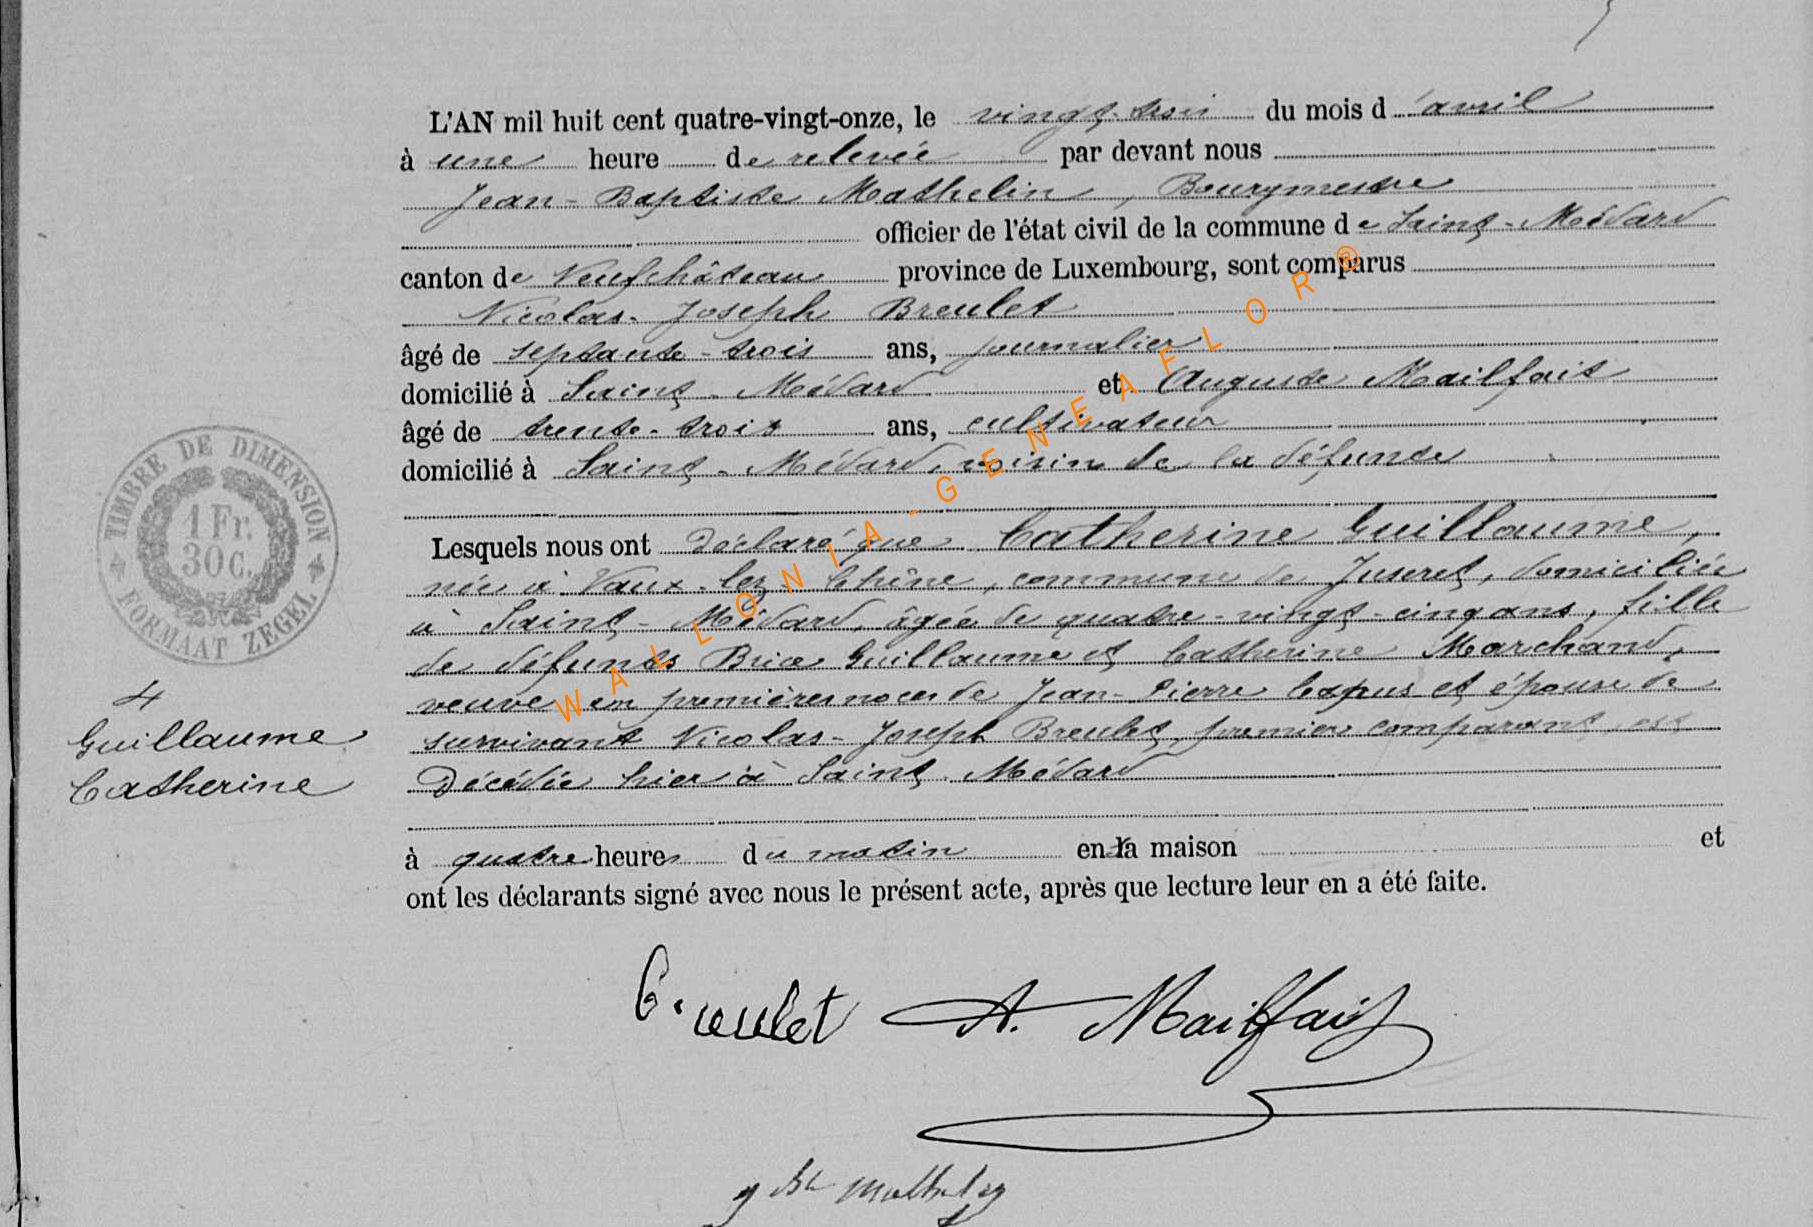 L'AN mil huit cent quatre-vingt-onze, le vingt-trois du mois d'avril
à une heure de relevée par devant nous
Jean-Baptiste Mathelin, Bourgmestre
officier de l'état civil de la commune de Saint-Médard
canton de Neufchâteau province de Luxembourg, sont comparus
Nicolas-Joseph Breulet
âgé de septante-trois ans, journalier
domicilié à Saint-Médard et Auguste Mailfait
âgé de trente-trois ans, cultivateur
domicilié à Saint-Médard, voisin de la défunte
Lesquels nous ont déclaré que Catherine Guillaume,
née à Vaux-lez-Chêne, commune de Juseret, domiciliée
à Saint-Médard, âgée de quatre-vingt-cinq ans, fille
de défunts Brice Guillaume et Catherine Marchand,
veuve en premières noces de Jean-Pierre et épouse de
survivant Nicolas-Joseph Breulet, premier comparant, est
décédée hier à Saint-Médard
à quatre heures du matin en la maison et
ont les déclarants signé avec nous le présent acte, après que lecture leur en a été faite.
TIMBRE DE DIMENSION
1 Fr.
30 C.
FORMAAT ZEGEL
4
Guillaume
Catherine
Breulet A. Mailfait
WALLONIA-GENEAFLOR®